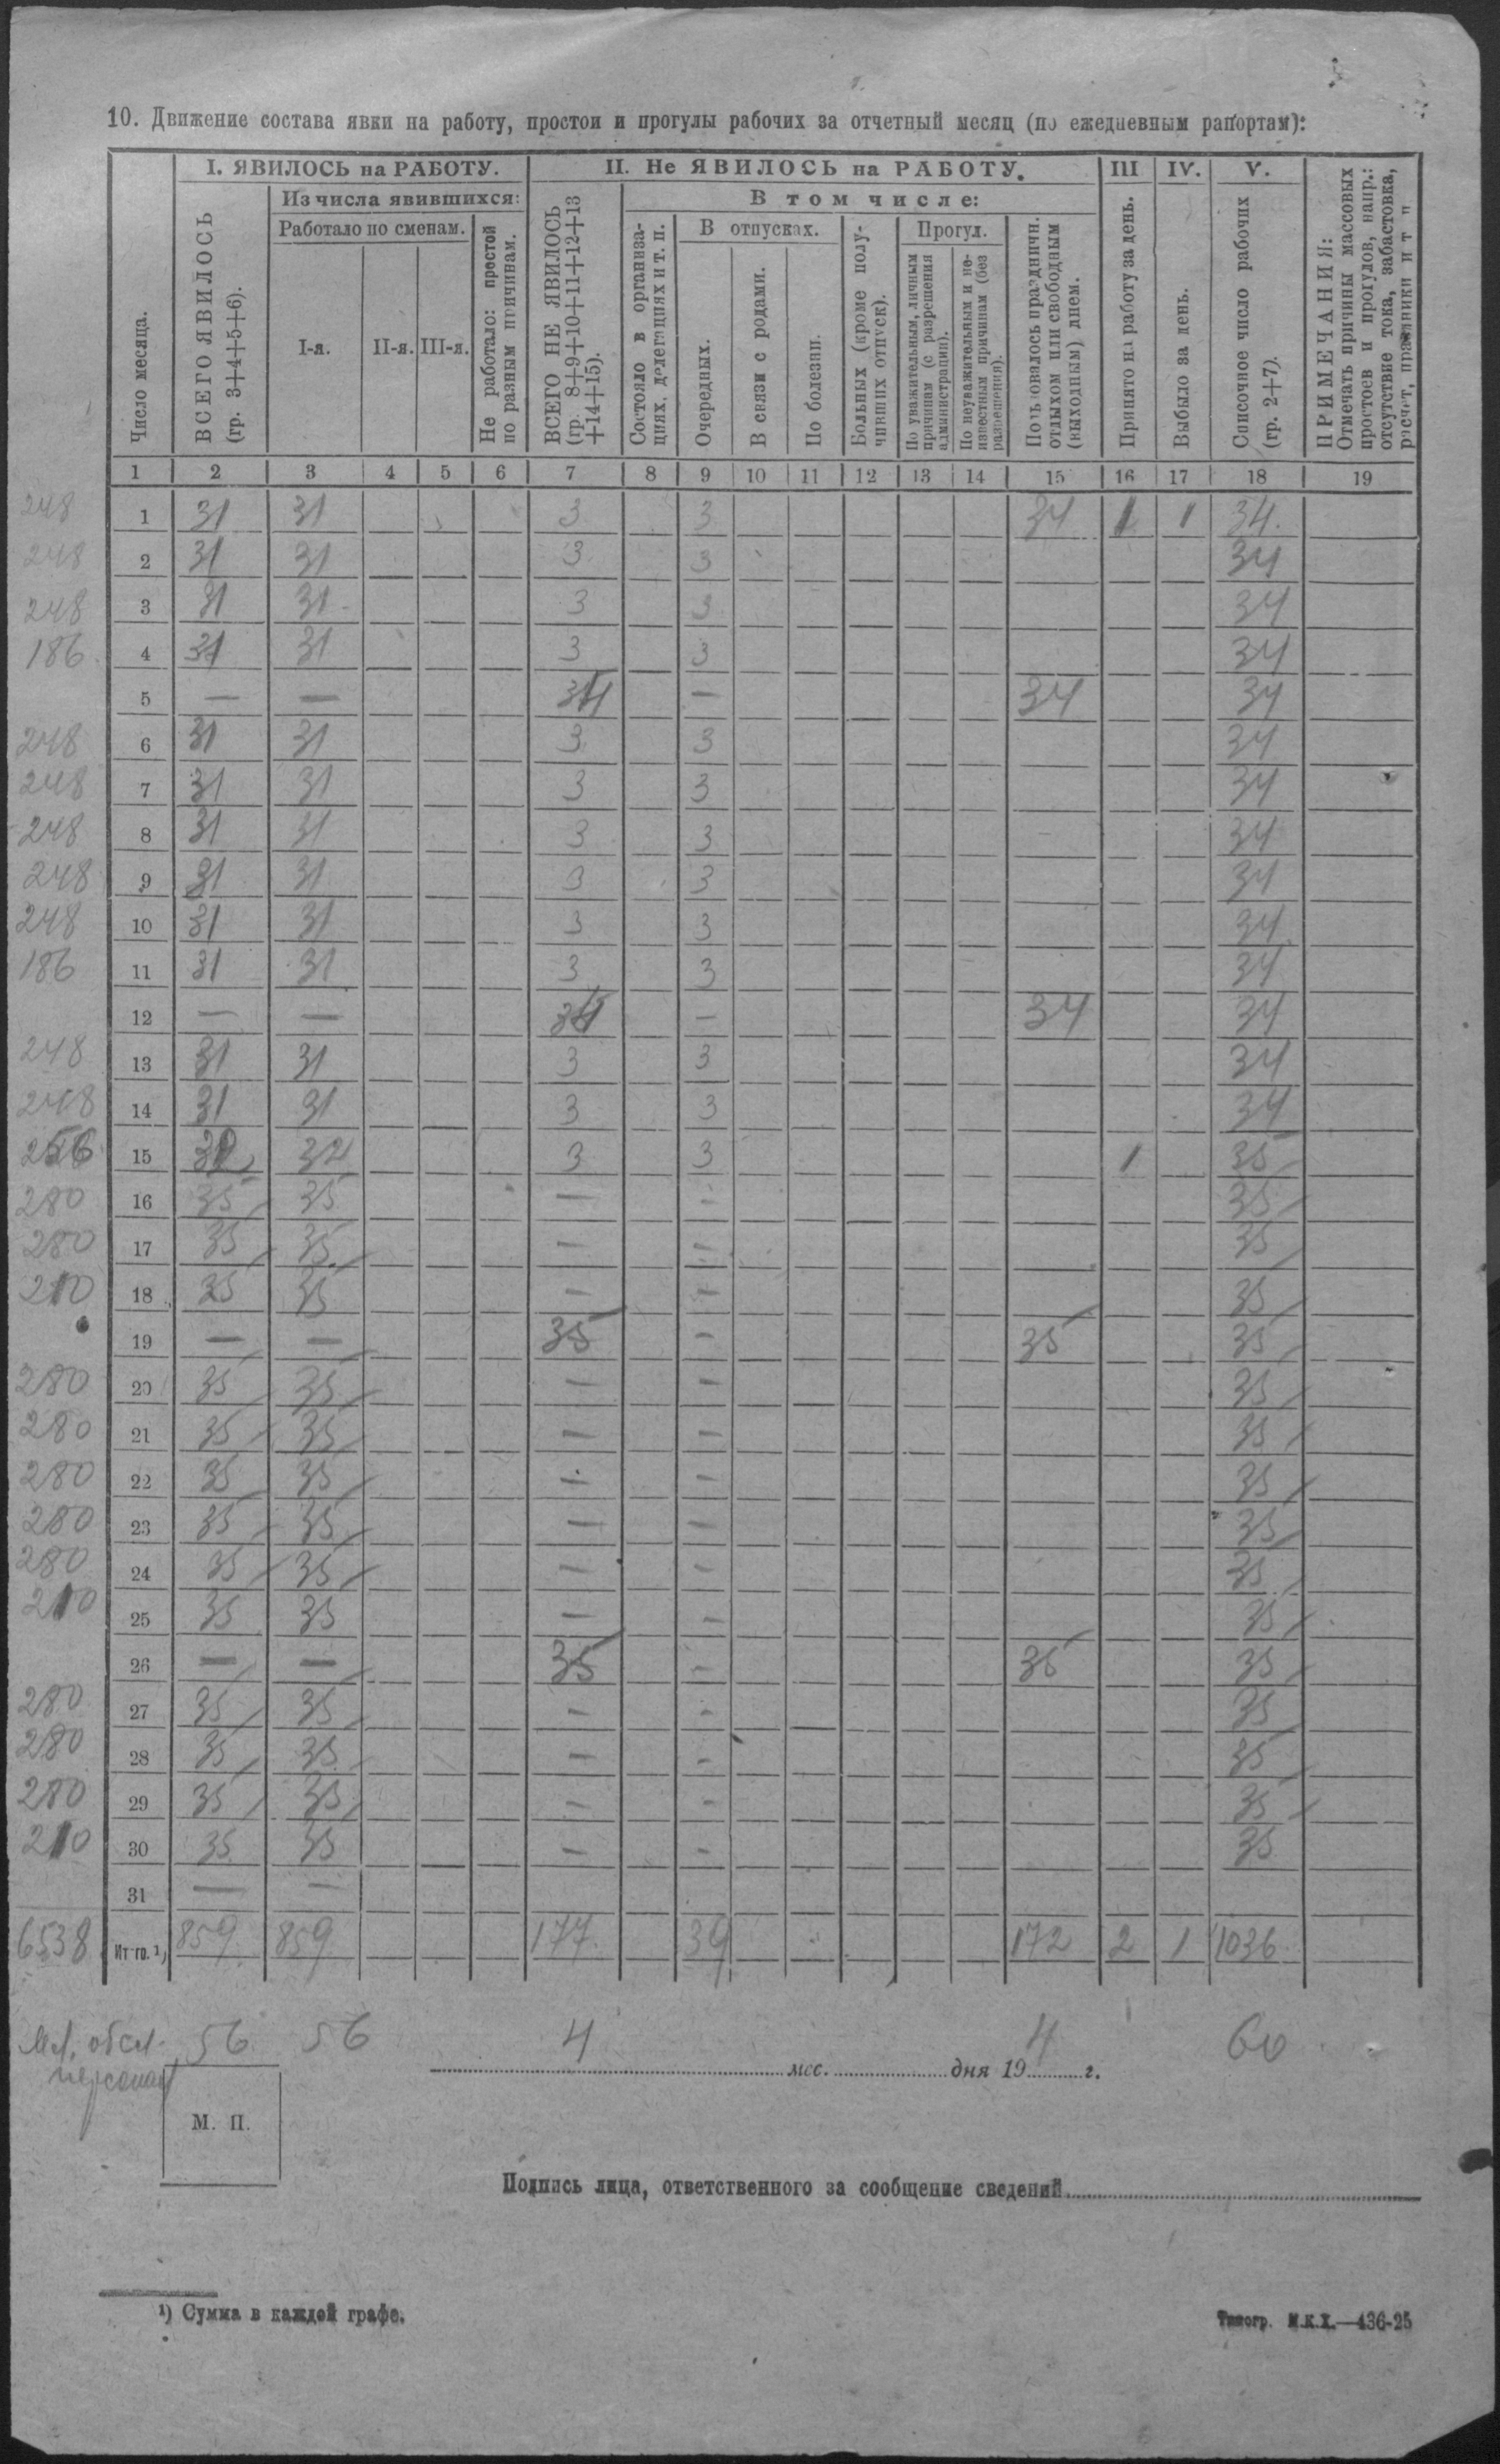 10. Движение состава явки на работу, простои и прогулы рабочих за отчетный месяц (по ежедневным рапортам):
I. ЯВИЛОСЬ на РАБОТУ. II. Не ЯВИЛОСЬ на РАБОТУ. III IV. V.
Из числа явившихся: В том числе:
Работало по сменам. В отпусках. Прогул.
Число месяца.
ВСЕГО ЯВИЛОСЬ
(гр. 3+4+5+6).
I-я. II-я. III-я.
Не работало: простой
по разным причинам.
ВСЕГО НЕ ЯВИЛОСЬ
(гр. 8+9+10+11+12+13
+14+15).
Состояло в организа-
циях, делегациях и т. п.
Очередных.
В связи с родами.
По болезни.
Больных (кроме полу-
чивших отпуск).
По уважительным, личным
причинам (с разрешения
администрации).
По неуважительным и не-
известным причинам (без
разрешения).
Пользовалось праздничн.
отдыхом или свободным
(выходным) днем.
Принято на работу за день.
Выбыло за день.
Списочное число рабочих
(гр. 2+7).
ПРИМЕЧАНИЯ:
Отмечать причины массовых
простоев и прогулов, напр.:
отсутствие тока, забастовка,
расчет, праздники и т п
1 2 3 4 5 6 7 8 9 10 11 12 13 14 15 16 17 18 19
248 1 31 31 3 3 34 1 1 34.
248 2 31 31 3 3 34
248 3 31 31 3 3 34
186 4 31 31 3 3 34
5 — — 34 — 34 34
248 6 31 31 3 3 34
248 7 31 31 3 3 34
248 8 31 31 3 3 34
248 9 31 31 3 3 34
248 10 31 31 3 3 34
186 11 31 31 3 3 34
12 — — 34 — 34 34
248 13 31 31 3 3 34
248 14 31 31 3 3 34
256 15 32 32 3 3 1 35
280 16 35 35 — — 35
280 17 35 35 — — 35
210 18 35 35 — — 35
19 — — 35 — 35 35
280 20 35 35 — — 35
280 21 35 35 — — 35
280 22 35 35 — — 35
280 23 35 35 — — 35
280 24 35 35 — — 35
210 25 35 35 — — 35
26 — — 35 — 35 35
280 27 35 35 — — 35
280 28 35 35 — — 35
280 29 35 35 — — 35
210 30 35 35 — — 35
31 — —
6538 Итого. ¹) 859 859 177 39 172 2 1 1036
Мл. обсл. 56 56 4 4 60
персонал
мес. дня 19 г.
М. П.
Подпись лица, ответственного за сообщение сведений
¹) Сумма в каждой графе.
Типогр. М.К.Х.—436-25